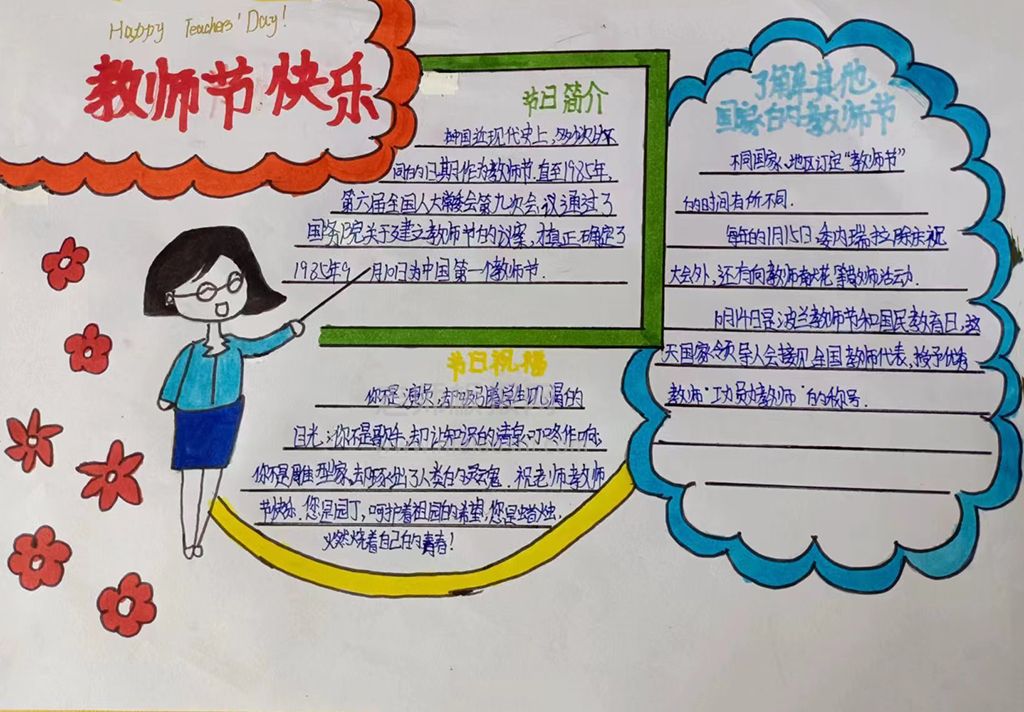 Happy Teachers' Day!
教师节快乐
节日简介
中国近现代史上,多次以不
同的日期作为教师节.直至1985年,
第六届全国人大常委会第九次会议通过了
国务院关于建立教师节的议案,才真正确定了
1985年9月10日为中国第一个教师节.
节日祝福
你不是演员,却吸引着学生饥渴的
目光;你不是歌手,却让知识的清泉叮咚作响,
你不是雕型家,却塑出了人类的灵魂.祝老师教师
节快乐.您是园丁,呵护着祖国的希望,您是蜡烛,
燃烧着自己的青春!
了解其他
国家的教师节
不同国家、地区订定“教师节”
的时间有所不同.
每年的1月15日,委内瑞拉除庆祝
大会外,还有向教师献花等教师活动.
10月14日是波兰教师节和国民教育日,这
天国家领导人会接见全国教师代表,授予优秀
教师“功勋教师”的称号.